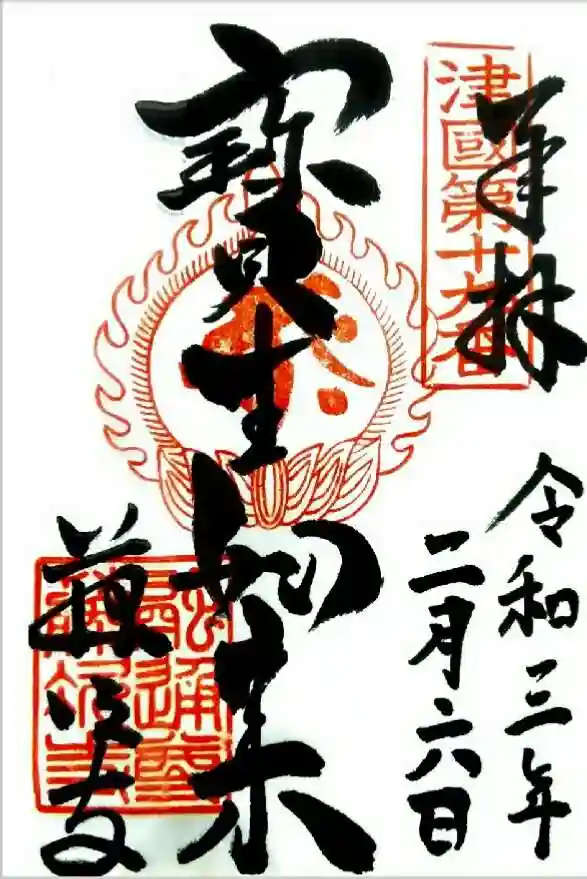 奉拜
津國第十九番
令和三年
二月六日
寳生如来
藤次寺